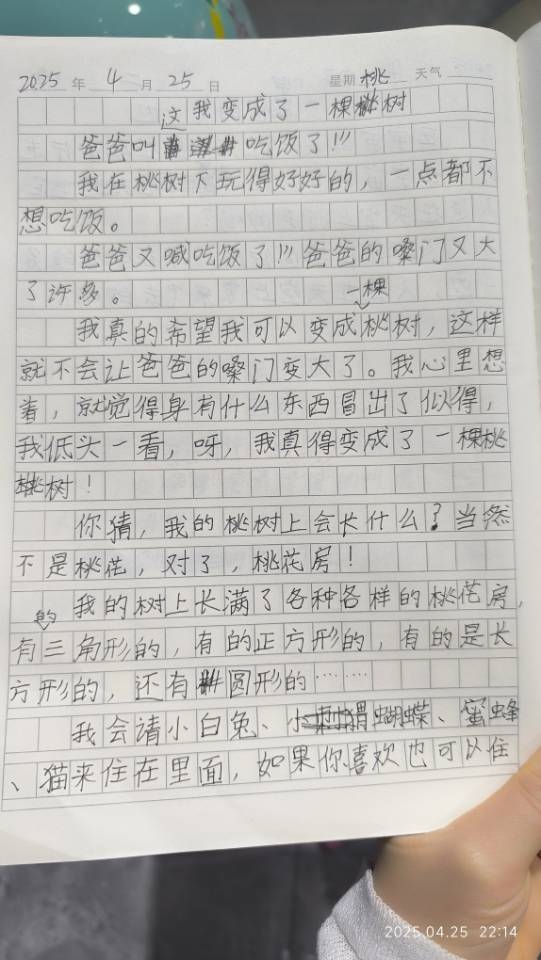 2025 年 4 月 25 日 星期 桃 天气
这我变成了一棵桃树
爸爸叫吃饭了!!!
我在桃树下玩得好好的，一点都不
想吃饭。
爸爸又喊吃饭了!!!爸爸的嗓门又大
了许多。 一棵
我真的希望我可以变成桃树，这样
就不会让爸爸的嗓门变大了。我心里想
着，就觉得身有什么东西冒出了似得，
我低头一看，呀，我真得变成了一棵桃
桃树！
你猜，我的桃树上会长什么？当然
不是桃花，对了，桃花房！
的 我的树上长满了各种各样的桃花房，
有三角形的，有的正方形的，有的是长
方形的，还有圆形的……
我会请小白兔、小刺猬蝴蝶、蜜蜂
、猫来住在里面，如果你喜欢也可以住
2025.04.25 22:14